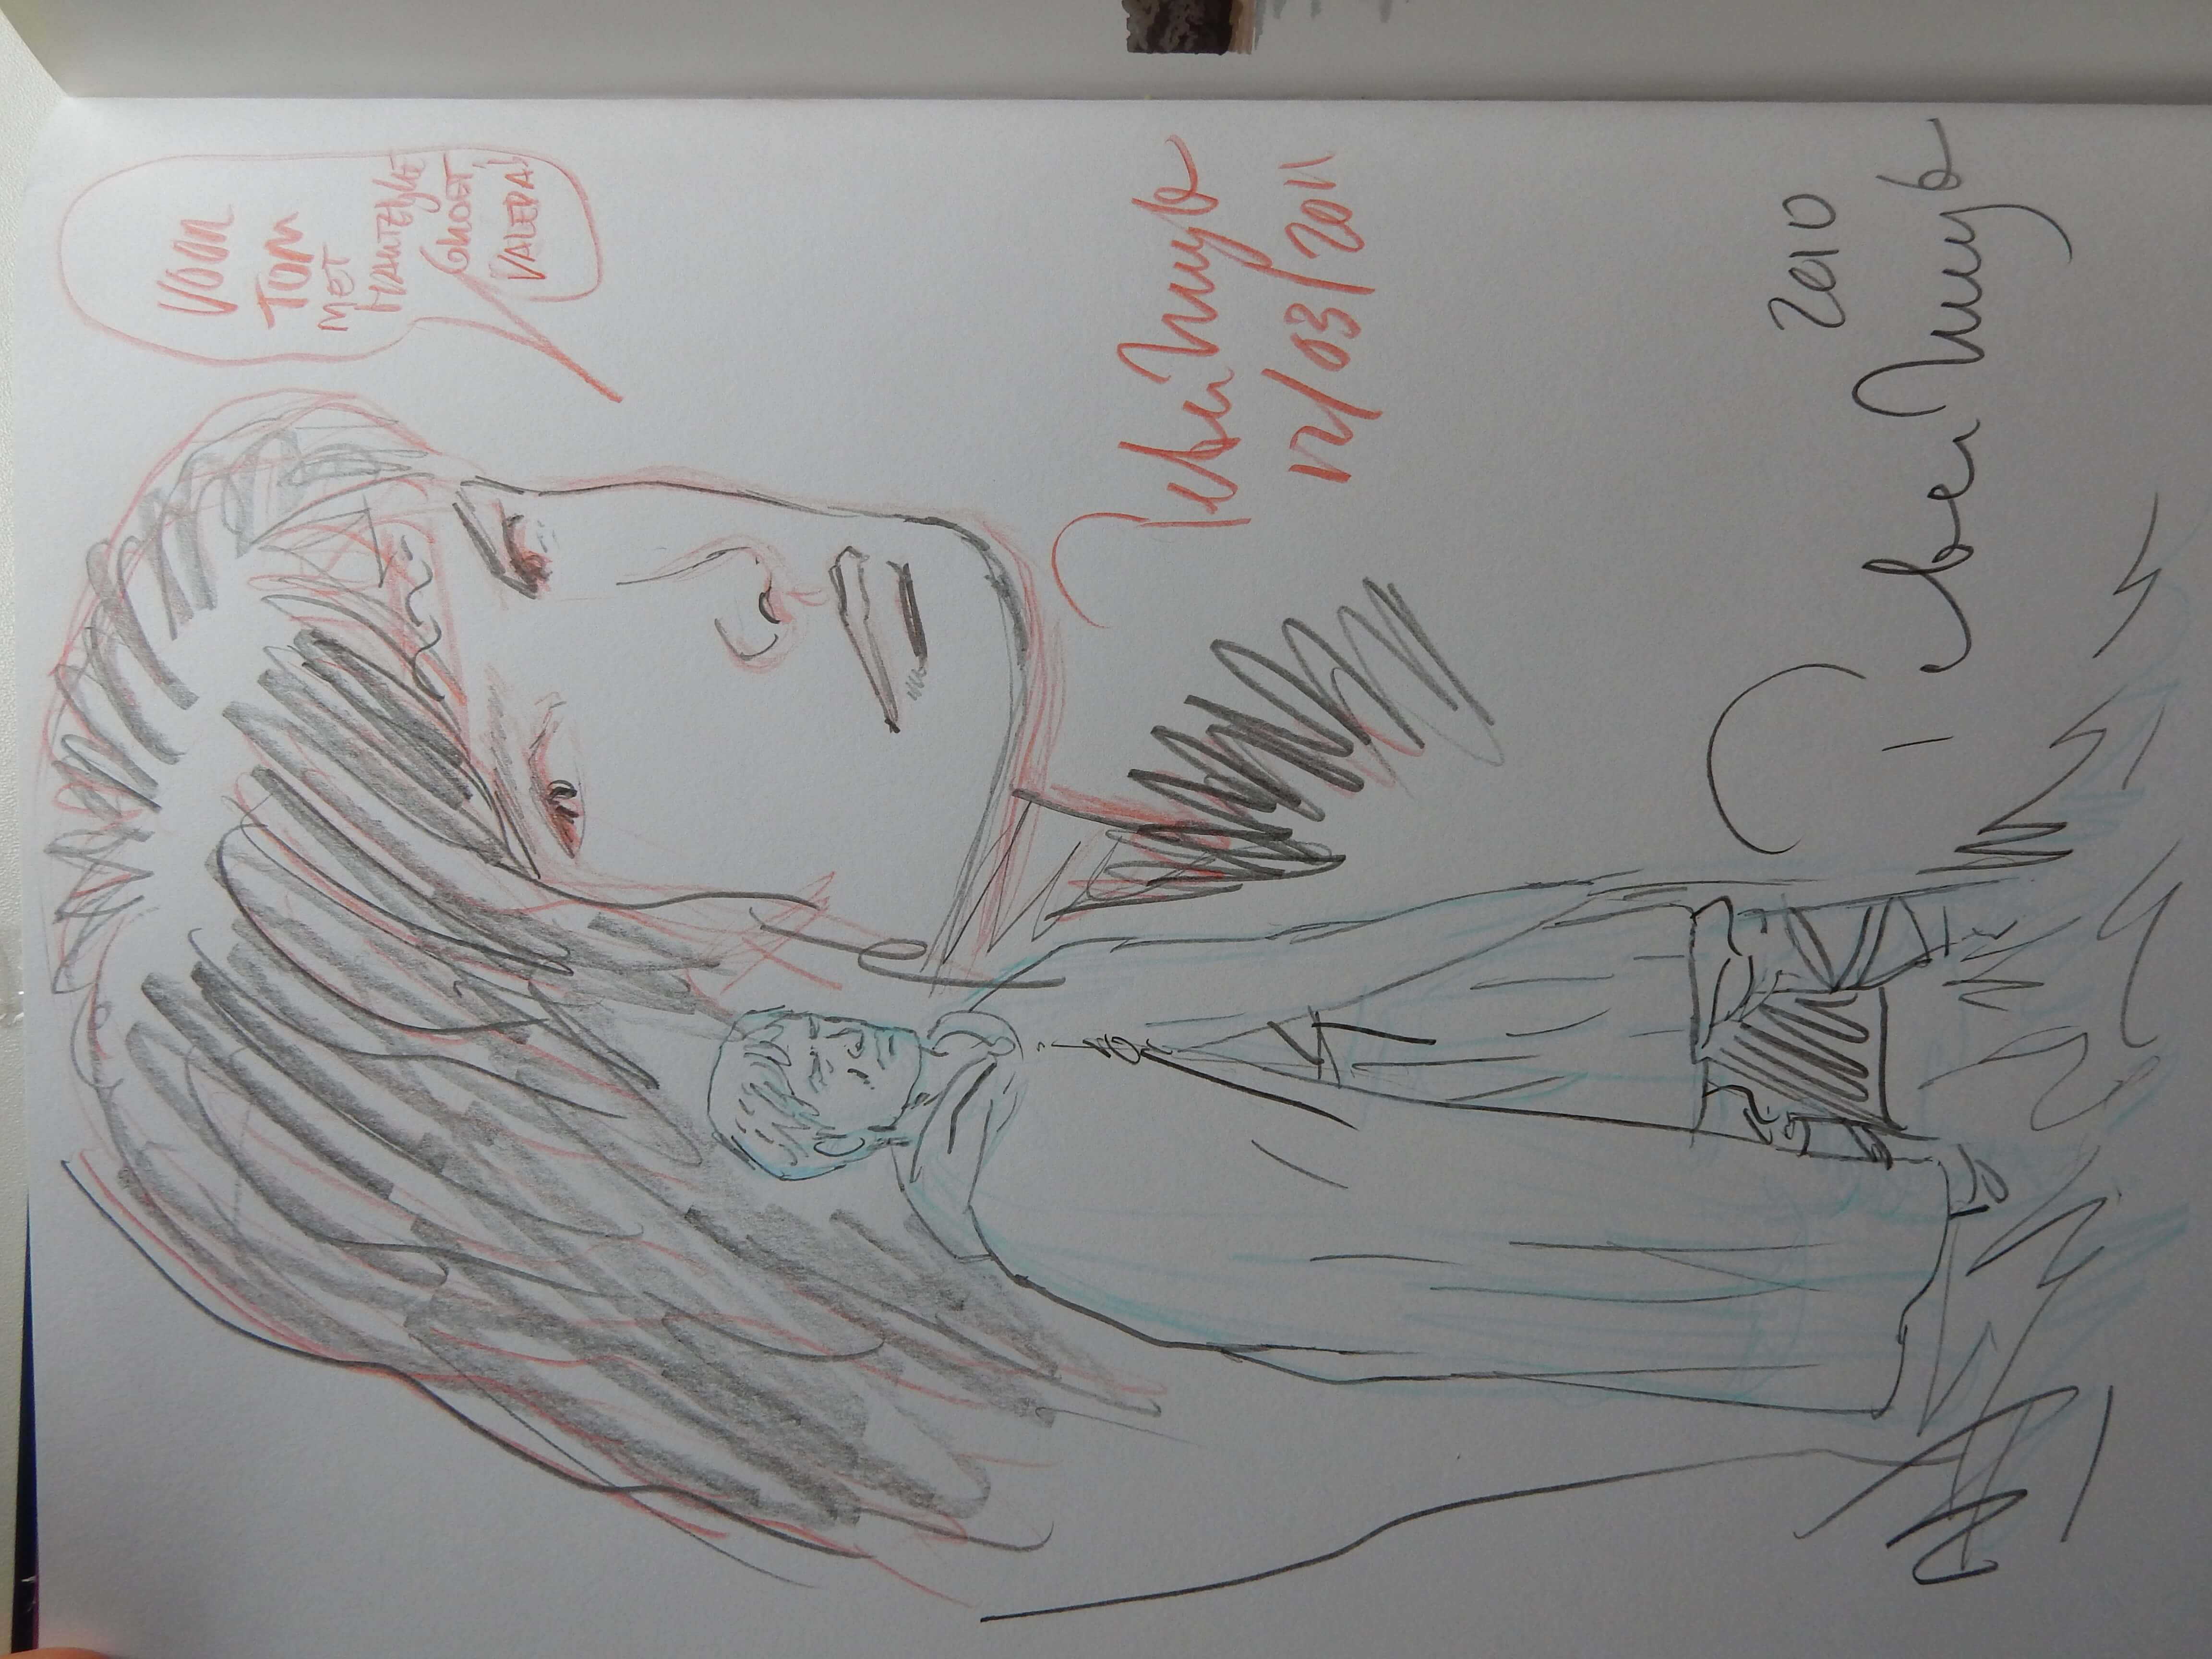 VOOR
TOM
MET
HARTELIJKE
GROET,
VALEDA!
Peter Nuyts
12/03/2011
2010
Peter Nuyts